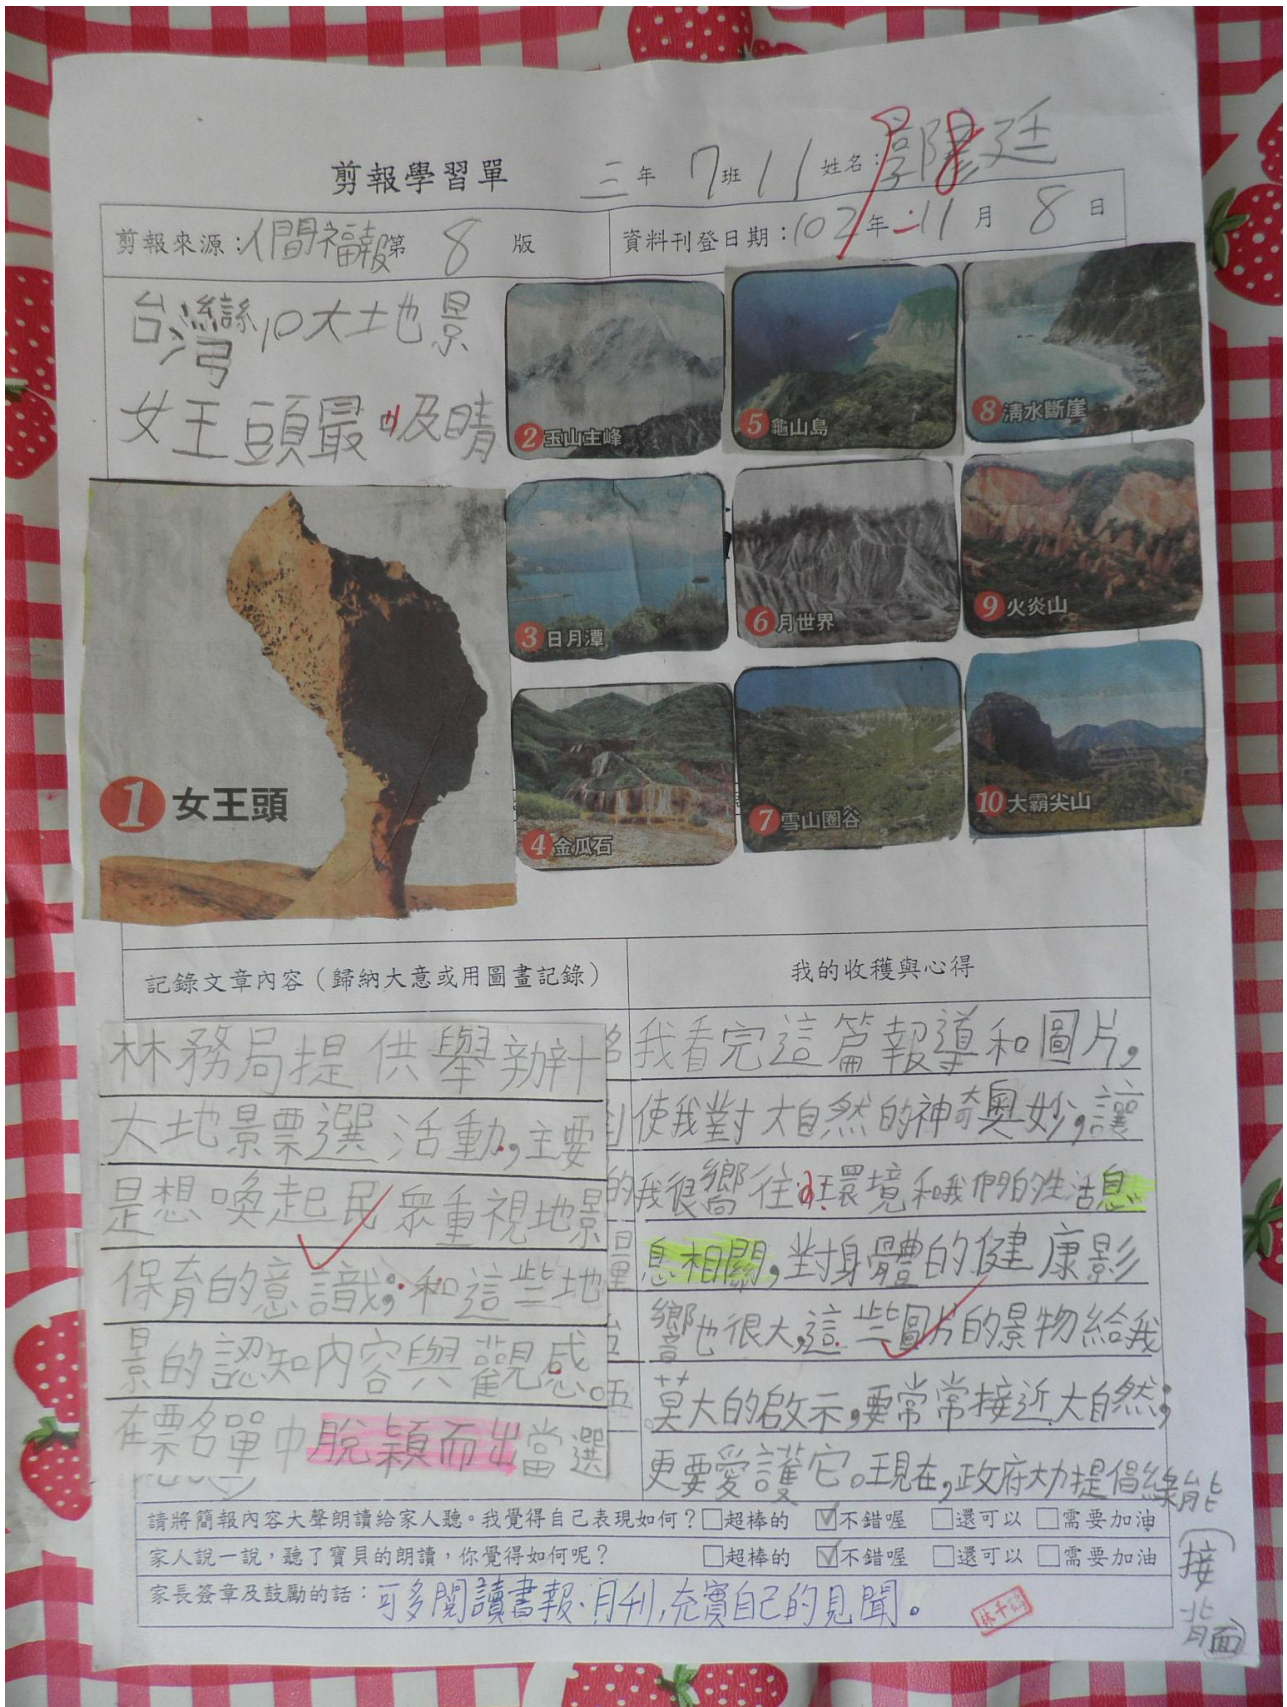 剪報學習單 三年7班11 姓名:郭彥廷
剪報來源:人間福報第8版
資料刊登日期:102年11月8日
台灣10大土地景
女王頭最吸晴
1女王頭
2玉山主峰
5龜山島
8清水斷崖
3日月潭
6月世界
9火炎山
4金瓜石
7雪山圈谷
10大霸尖山
記錄文章內容(歸納大意或用圖畫記錄)
林務局提供舉辦計
大地景票選活動,主要
是想喚起民眾重視地景
保育的意識;和這些地
景的認知內容與觀感。
在票名單中脫穎而出當選
我的收穫與心得
我看完這篇報導和圖片,
使我對大自然的神奇奧妙,讓
我很嚮往環境和我們的生活息
息相關,對身體的健康影
響也很大,這些圖片的景物給我
莫大的啟示,要常常接近大自然;
更要愛護它。現在,政府大力提倡綠能
(接
背面)
請將簡報內容大聲朗讀給家人聽。我覺得自己表現如何?□超棒的 ☑不錯喔 □還可以 □需要加油
家人說一說,聽了寶貝的朗讀,你覺得如何呢? □超棒的 ☑不錯喔 □還可以 □需要加油
家長簽章及鼓勵的話:可多閱讀書報、月刊,充實自己的見聞。